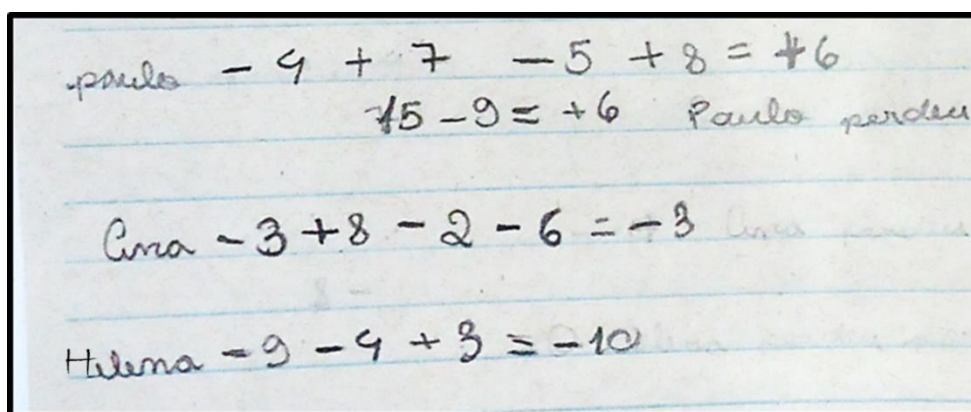 paulo - 4 + 7 - 5 + 8 = +6
15 - 9 = +6 Paulo perdeu
Ana - 3 + 8 - 2 - 6 = - 3
Helena - 9 - 4 + 3 = - 10